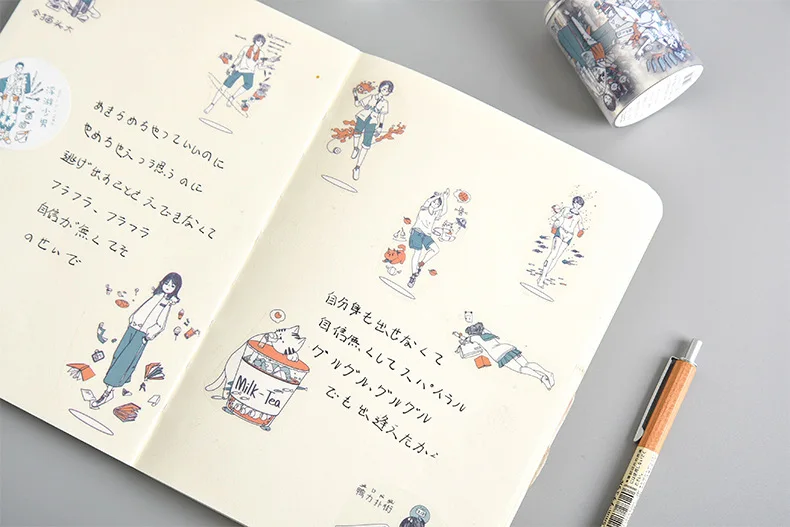 あきらめちゃっていいのに
やめちゃえって思うのに
逃げ出すことさえできなくて
フラフラ、フラフラ
自信が無くてそ
のせいで
自分身も出せなくて
自信無くしてスパイラル
グルグル・グルグル
でも出逢えたから
Milk-Tea